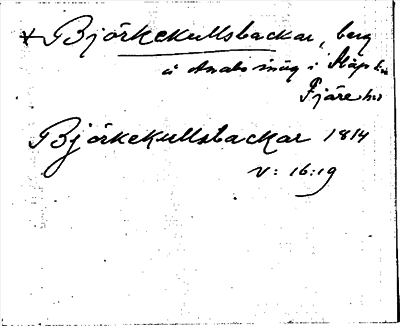 × Björkekullsbackar, berg
å Anabo inäg i Släps sn
Fjäre hd
Björkekullsbackar 1814
V: 16:19